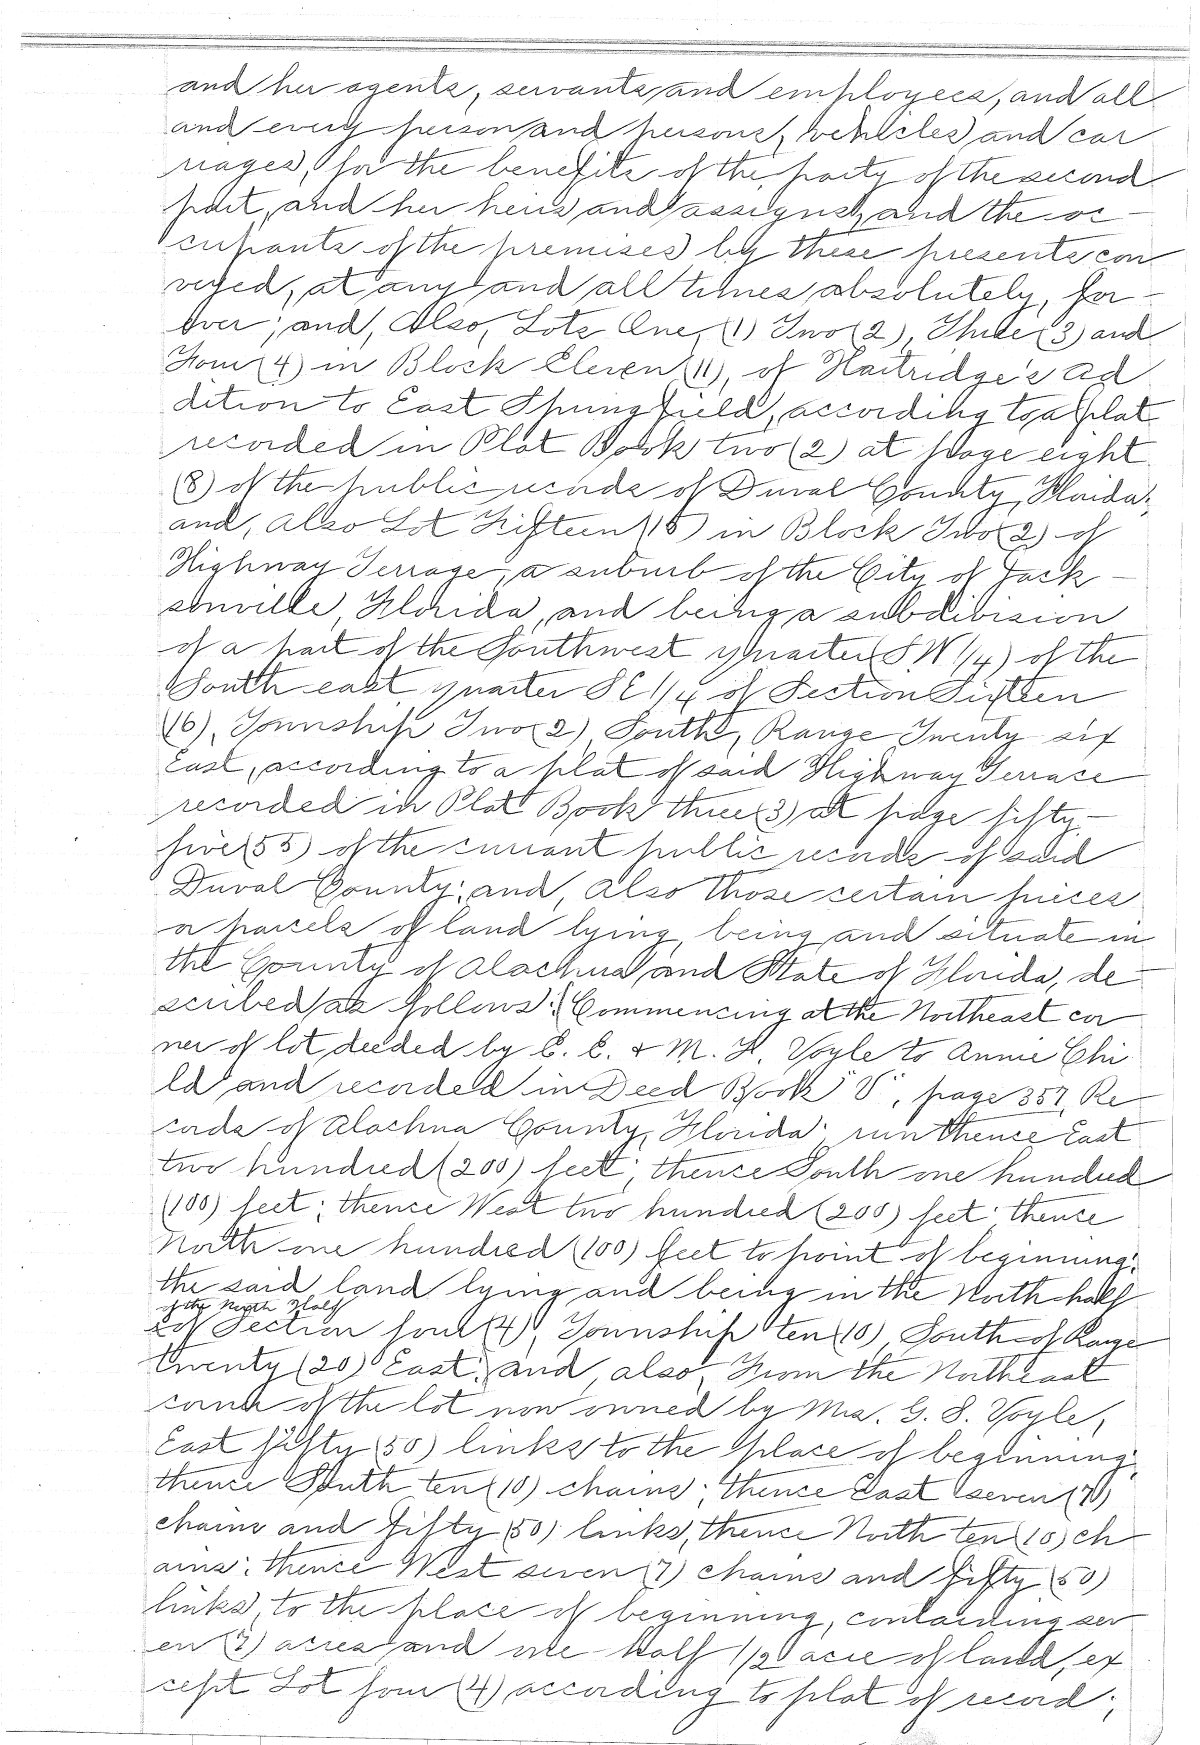 and her agents, servants and employees, and all
and every person and persons, vehicles and car
riages, for the benefits of the party of the second
part, and her heirs and assigns, and the oc-
cupants of the premises by these presents con
veyed, at any and all times absolutely, for-
ever; and, Also, Lots One (1) Two (2), Three (3) and
Four (4) in Block Eleven (11), of Hartridge's Ad
dition to East Springfield, according to a plat
recorded in Plat Book two (2) at page eight
(8) of the public records of Duval County, Florida;
and, Also Lot Fifteen (15) in Block Two (2) of
Highway Terrage, a suburb of the City of Jack-
sonville, Florida, and being a subdivision
of a part of the Southwest quarter (SW 1/4) of the
South east quarter SE 1/4 of Section Sixteen
(16), Township Two (2), South, Range Twenty six
East, according to a plat of said Highway Terrace
recorded in Plat Book three (3) at page fifty-
five (55) of the currant public records of said
Duval County; and, Also those certain pieces
or parcels of land lying, being and situate in
the County of Alachua and State of Florida, de-
scribed as follows: (Commencing at the Northeast cor
ner of lot deeded by E. E. & M. H. Voyle to Annie Chi
ld and recorded in Deed Book "V", page 357, Re-
cords of Alachua County, Florida; run thence East
two hundred (200) feet; thence South one hundred
(100) feet; thence West two hundred (200) feet; thence
North one hundred (100) feet to point of beginning;
the said land lying and being in the North half
of the North Half
of Section four (4), Township ten (10), South of Range
twenty (20) East;) and, also, From the Northeast
corner of the lot now owned by Mrs. G. S. Voyle,
East fifty (50) links to the place of beginning;
thence South ten (10) chains; thence East seven (7)
chains and fifty (50) links, thence North ten (10) ch
ains; thence West seven (7) chains and fifty (50)
links, to the place of beginning, containing sev
en (7) acres and one half 1/2 acre of land, ex
cept Lot four (4) according to plat of record;